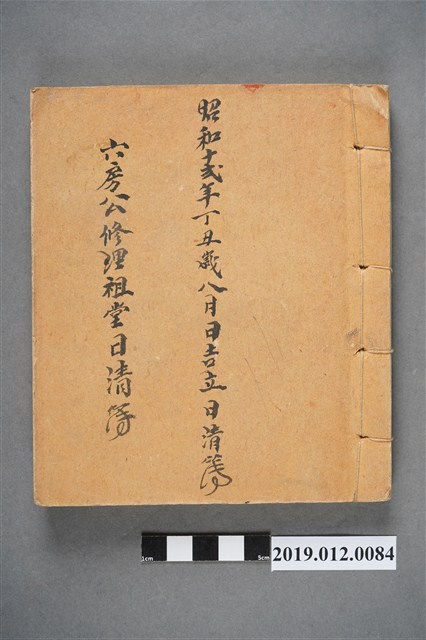 昭和十弍年丁丑歲八月日吉立日清簿
六房公修理祖堂日清簿
1cm
5cm
2019.012.0084